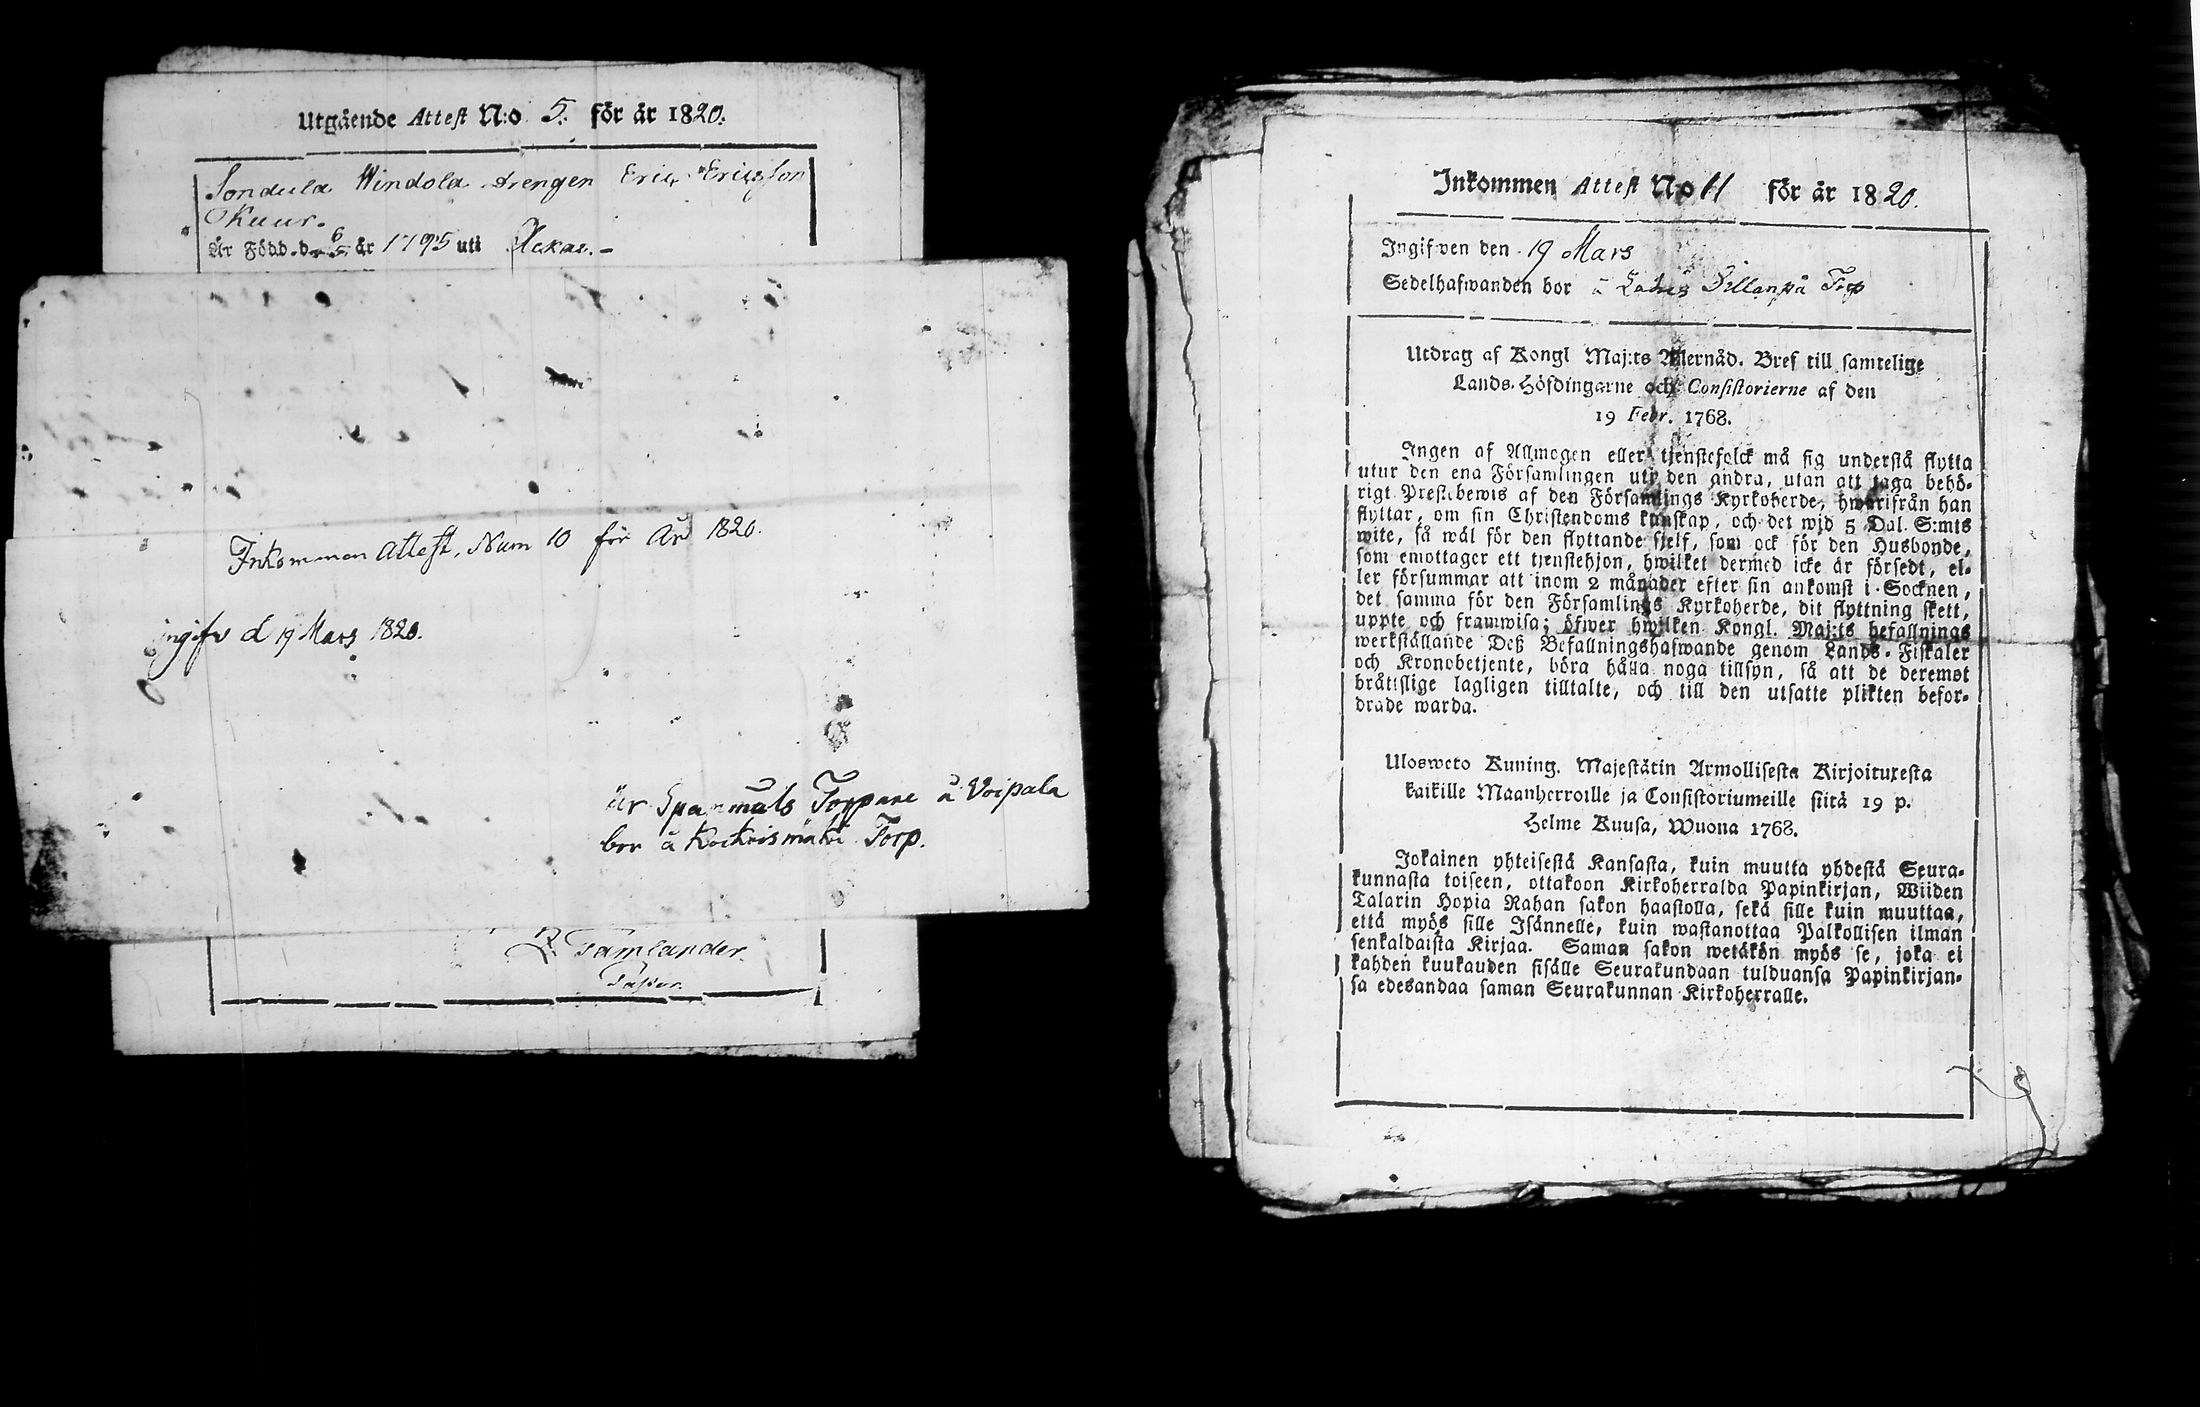 Utgående Attest N:o 5. för år 1820.
Sondula Windola drengen Eric Ericsson
Kuur.
Är Född. d. 6 år 1795 uti Ackas.
Inkommen Attest, Num 10 för År 1820.
ingifv d 19 Mars 1820.
är Spanmåls Torppare å Voipala
bor å Kockoismäki Torp.
Tamlander.
Pastor.
Inkommen Attest N:o 11 för år 1820.
Ingifwen den 19 Mars
Sedelhafwanden bor å Sillanpä Torp
Utdrag af Kongl Maj:ts Allernåd. Bref till samtelige
Lands-Höfdingarne och Consistorierne af den
19 Febr. 1768.
Ingen af Allmogen eller tjenstefolck må sig understå flytta
utur den ena Församlingen uti den andra, utan att taga behö-
rigt Prestebewis af den Församlings Kyrkoherde, hwarifrån han
flyttar, om sin Christendoms kunskap, och det wjd 5 Dal. S:mts
wite, så wäl för den flyttande sjelf, som ock för den Husbonde,
som emottager ett tjenstehjon, hwilket dermed icke är försedt, el-
ler försummar att inom 2 månader efter sin ankomst i Socknen,
det samma för den Församlings Kyrkoherde, dit flyttning skett,
uppte och framwisa; öfwer hwilken Kongl. Maj:ts befallnings
werkställande Deß Befallningshafwande genom Lands-Fiskaler
och Kronobetjente, böra hålla noga tillsyn, så att de deremot
bråttslige lagligen tilltalte, och till den utsatte plikten befor-
drade warda.
Ulosweto Kuning. Majestätin Armollisesta Kirjoituxesta
kaikille Maanherroille ja Consistoriumeille siitä 19 p.
Helme Kuusa, Wuona 1768.
Jokainen yhteisestä Kansasta, kuin muutta yhdestä Seura-
kunnasta toiseen, ottakoon Kirkoherralda Papinkirjan, Wiiden
Talarin Hopia Rahan sakon haastolla, sekä sille kuin muuttaa,
että myös sille Isännelle, kuin wastanottaa Palkollisen ilman
senkaldaista Kirjaa. Saman sakon wetäkön myös se, joka ei
kahden kuukauden sisälle Seurakundaan tulduansa Papinkirjan-
sa edesandaa saman Seurakunnan Kirkoherralle.